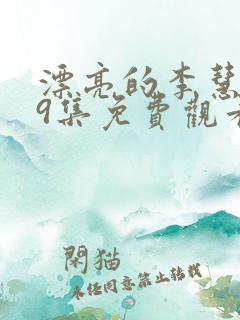 漂亮的李慧
9集免費觀看
閑猫
未经同意禁止转载